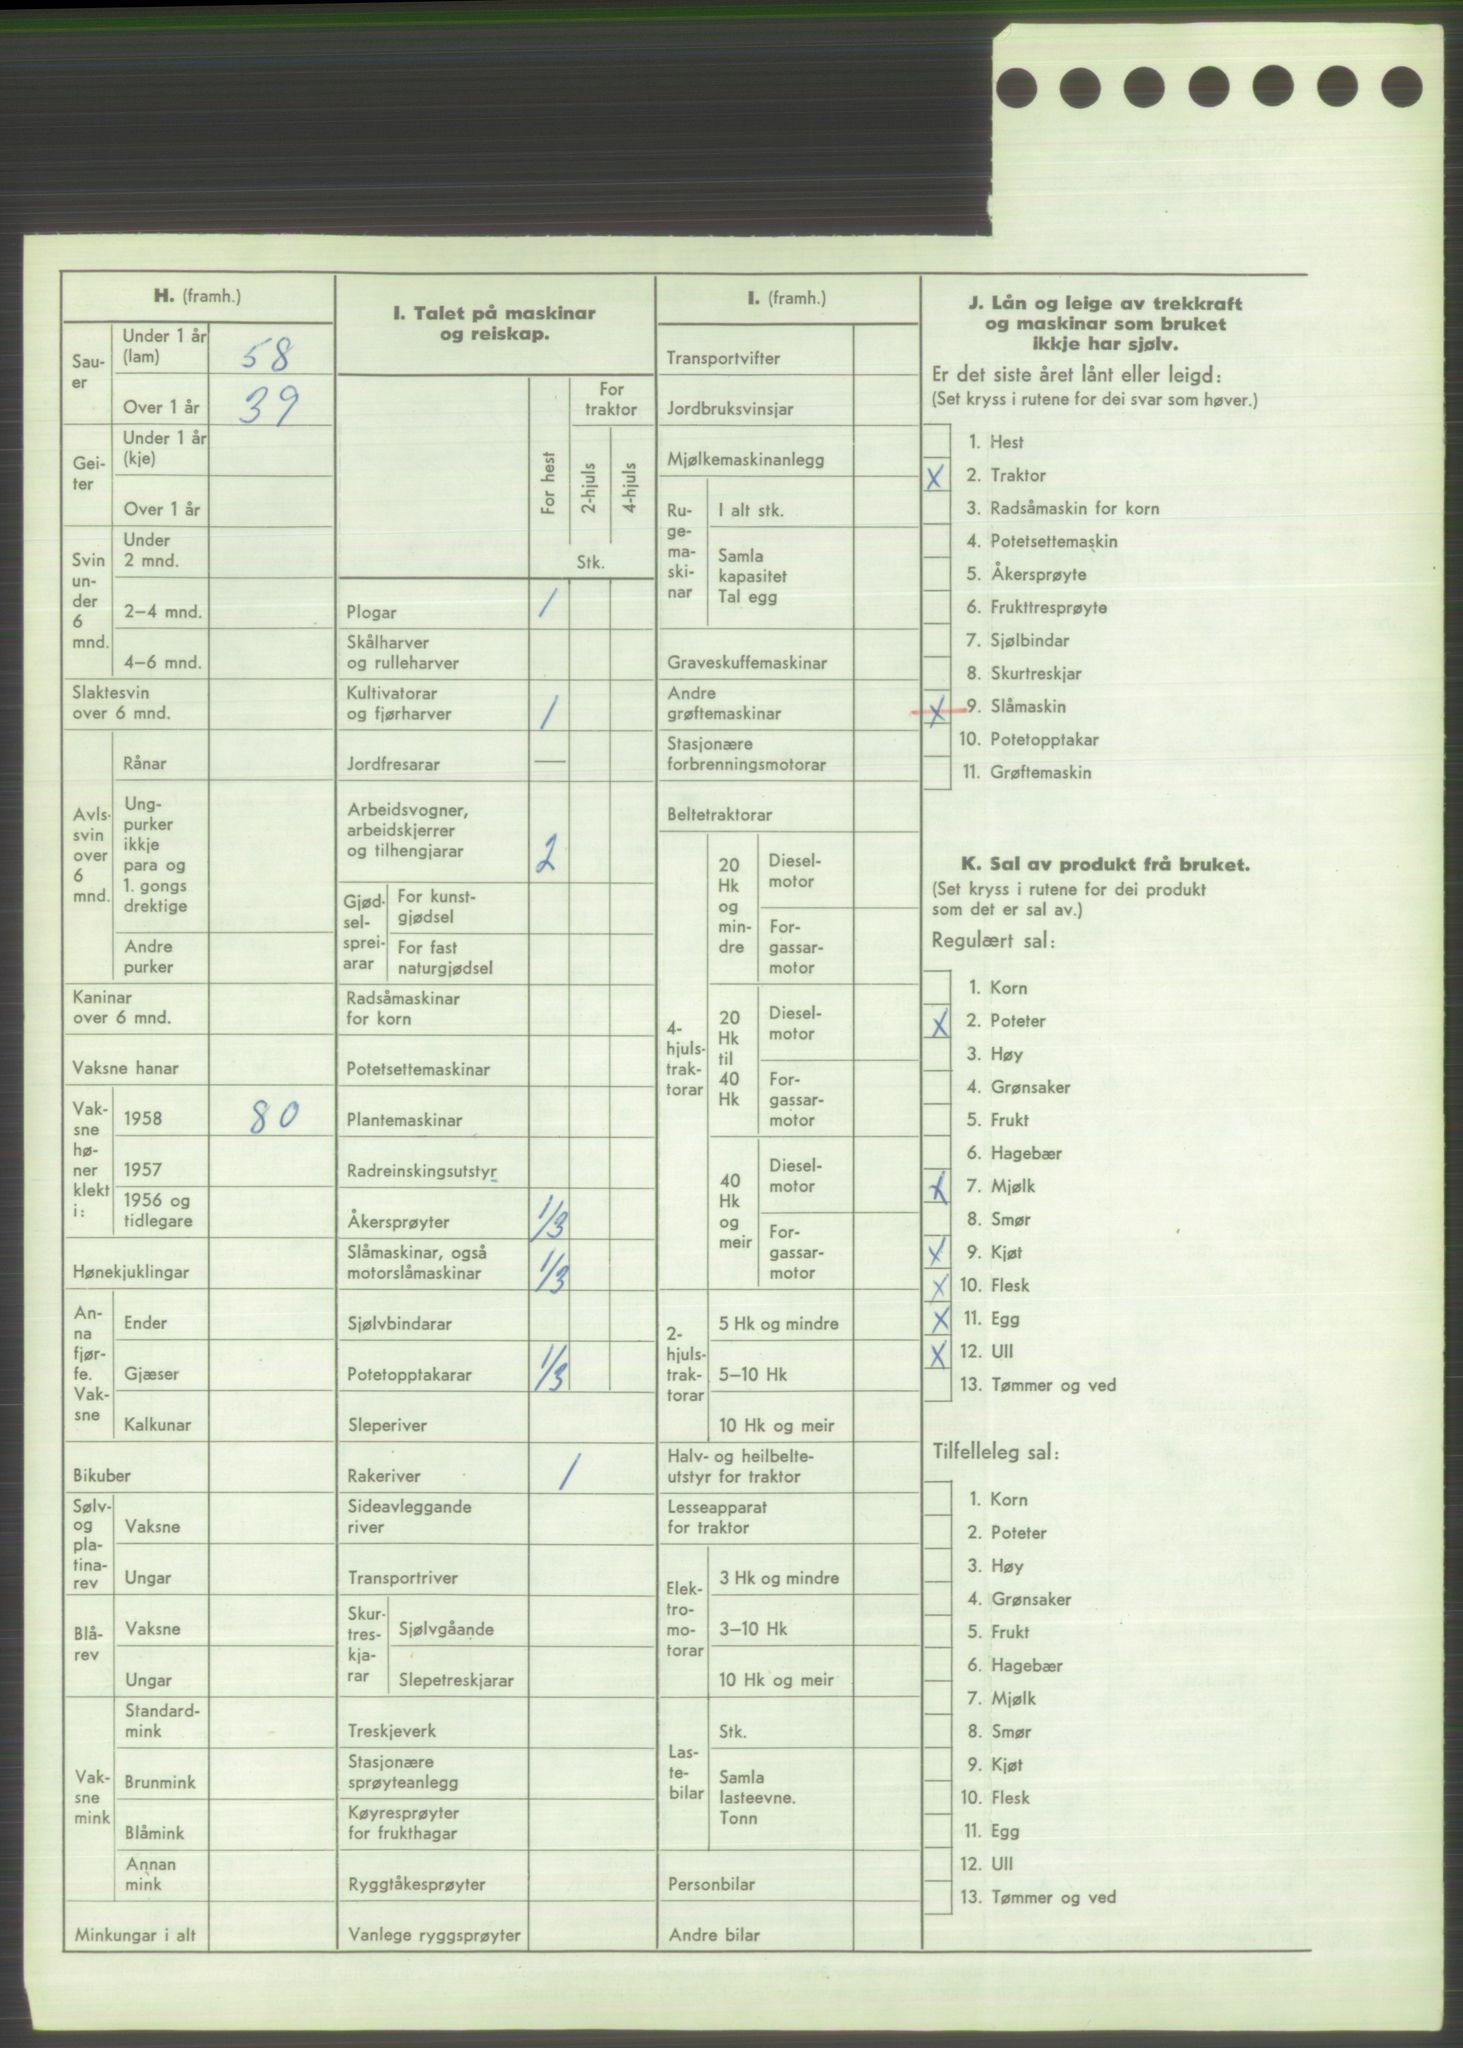 H. (framh.)
Sau-
er
Under 1 år
(lam)
58
Over 1 år
39
Gei-
ter
Under 1 år
(kje)
Over 1 år
Svin
un-
der
6
mnd.
Under
2 mnd.
2–4 mnd.
4–6 mnd.
Slaktesvin
over 6 mnd.
Avls-
svin
over
6
mnd.
Rånar
Ung-
purker
ikkje
para og
1. gongs
drektige
Andre
purker
Kaninar
over 6 mnd.
Vaksne hanar
Vak-
sne
hø-
ner
klekt
i:
1958
80
1957
1956 og
tidlegare
Hønekjuklingar
An-
na
fjør-
fe.
Vak-
sne
Ender
Gjæser
Kalkunar
Bikuber
Sølv-
og
pla-
tina-
rev
Vaksne
Ungar
Blå-
rev
Vaksne
Ungar
Vak-
sne
mink
Standard-
mink
Brunmink
Blåmink
Annan
mink
Minkungar i alt
I. Talet på maskinar
og reiskap.
For hest
For
traktor
2-hjuls
4-hjuls
Stk.
Plogar
1
Skålharver
og rulleharver
Kultivatorar
og fjørharver
1
Jordfresarar
—
Arbeidsvogner,
arbeidskjerrer
og tilhengjarar
2
Gjød-
sel-
sprei-
arar
For kunst-
gjødsel
For fast
naturgjødsel
Radsåmaskinar
for korn
Potetsettemaskinar
Plantemaskinar
Radreinskingsutstyr
Åkersprøyter
1/3
Slåmaskinar, også
motorslåmaskinar
1/3
Sjølvbindarar
Potetopptakarar
1/3
Sleperiver
Rakeriver
1
Sideavleggande
river
Transportriver
Skur-
tres-
kja-
rar
Sjølvgåande
Slepetreskjarar
Treskjeverk
Stasjonære
sprøyteanlegg
Køyresprøyter
for frukthagar
Ryggtåkesprøyter
Vanlege ryggsprøyter
I. (framh.)
Transportvifter
Jordbruksvinsjar
Mjølkemaskinanlegg
Ru-
ge-
ma-
ski-
nar
I alt stk.
Samla
kapasitet
Tal egg
Graveskuffemaskinar
Andre
grøftemaskinar
Stasjonære
forbrenningsmotorar
Beltetraktorar
4-
hjuls-
trak-
torar
20
Hk
og
min-
dre
Diesel-
motor
For-
gassar-
motor
20
Hk
til
40
Hk
Diesel-
motor
For-
gassar-
motor
40
Hk
og
meir
Diesel-
motor
For-
gassar-
motor
2-
hjuls-
trak-
torar
5 Hk og mindre
5–10 Hk
10 Hk og meir
Halv- og heilbelte-
utstyr for traktor
Lesseapparat
for traktor
Elek-
tro-
mo-
torar
3 Hk og mindre
3–10 Hk
10 Hk og meir
Las-
te-
bilar
Stk.
Samla
lasteevne.
Tonn
Personbilar
Andre bilar
J. Lån og leige av trekkraft
og maskinar som bruket
ikkje har sjølv.
Er det siste året lånt eller leigd:
(Set kryss i rutene for dei svar som høver.)
1. Hest
X 2. Traktor
3. Radsåmaskin for korn
4. Potetsettemaskin
5. Åkersprøyte
6. Frukttresprøyte
7. Sjølbindar
8. Skurtreskjar
X 9. Slåmaskin
10. Potetopptakar
11. Grøftemaskin
K. Sal av produkt frå bruket.
(Set kryss i rutene for dei produkt
som det er sal av.)
Regulært sal:
1. Korn
X 2. Poteter
3. Høy
4. Grønsaker
5. Frukt
6. Hagebær
X 7. Mjølk
8. Smør
X 9. Kjøt
X 10. Flesk
X 11. Egg
X 12. Ull
13. Tømmer og ved
Tilfelleleg sal:
1. Korn
2. Poteter
3. Høy
4. Grønsaker
5. Frukt
6. Hagebær
7. Mjølk
8. Smør
9. Kjøt
10. Flesk
11. Egg
12. Ull
13. Tømmer og ved